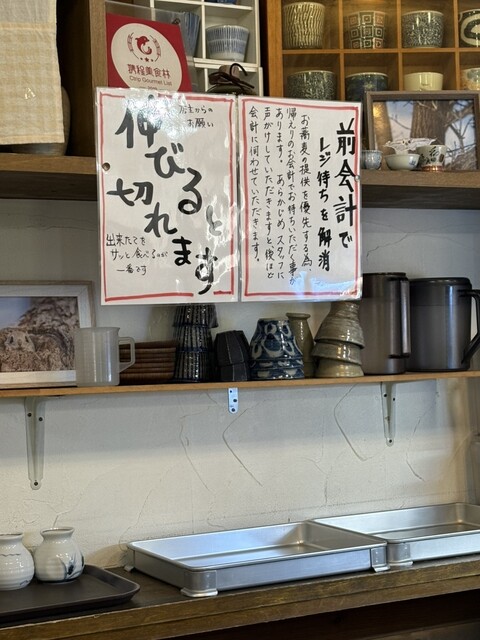 携程美食林
Ctrip Gourmet List
前会計で
レジ待ちを解消
お蕎麦の提供を優先する為
帰えりのお会計でお待ちいただく事が
あります。あらかじめスタッフに
声がけしていただきますと後ほど
会計に伺わせていただきます。
店主からの
お願い
伸びると
切れます
出来たてを
サッと食べるのが
一番です